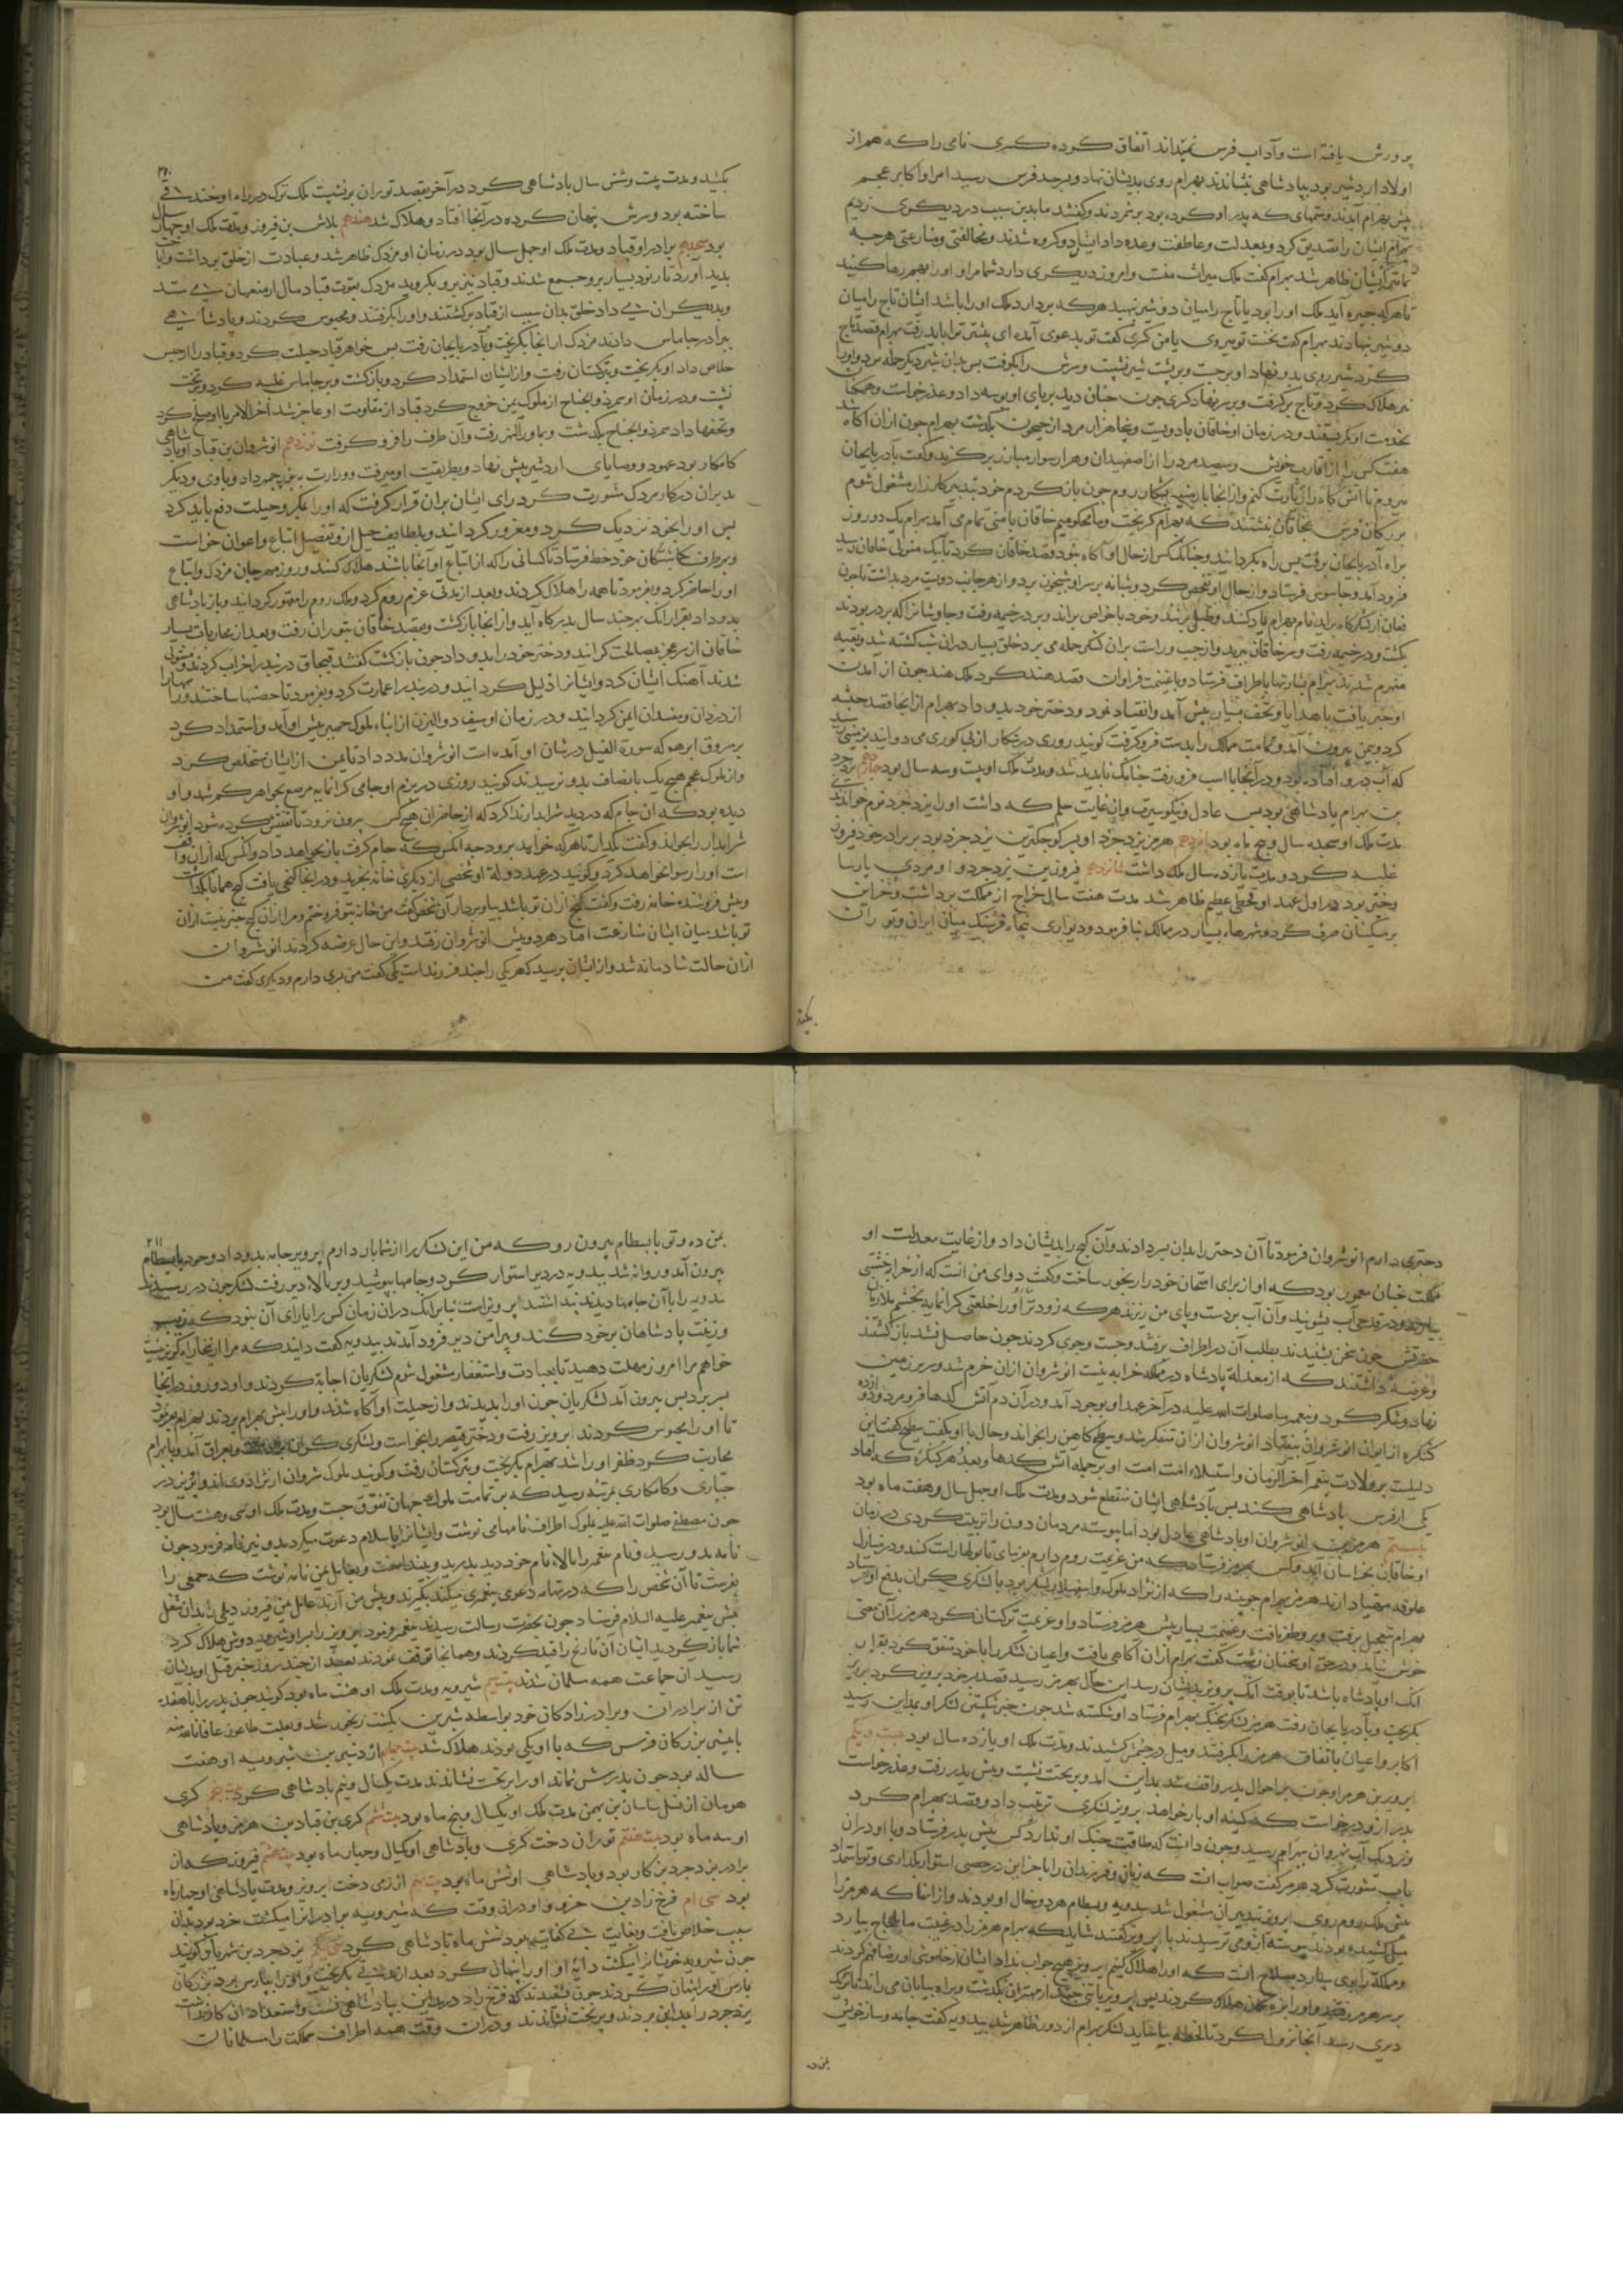 پرورش یافته است و آداب فرس نمیداند اتفاق کرده کسری نامی را که هم از
اولاد اردشیر بود بپادشاهی بنشاندند بهرام روی بدیشان نهاد و بسرحد فرس رسید امرا و اکابر عجم
پیش بهرام آمدند و ستمهای که پدر او کرده بود برشمردند و گفتند ما بدین سبب در دیگری زدیم
بهرام ایشان را تصدیق کرد و بمعدلت و عاطفت وعده داد ایشان دو کروه شدند و مخالفتی و منازعتی هرچه
تمامتر ایشان ظاهر شد بهرام گفت ملک میراث منست و امروز دیگری دارد شما مرا و او را بهم رها کنید
تا هر که چیره آید ملک او را بود یا تاج را میان دو شیر نهید هر که بردارد ملک او را باشد ایشان تاج را میان
دو شیر نهادند بهرام گفت نخست تو میروی یا من کسری گفت تو بدعوی آمده ای پیشتر ترا باید رفت بهرام قصد تاج
کرد شیر روی بدو نهاد او برجست و بر پشت شیر نشست و سرش را بکوفت پس بدان شیر دیگر حمله برد و او را
نیز هلاک کرد و تاج برگرفت و بر سر نهاد کسری چون چنان دید بر پای او بوسه داد و عذر خواست و همگان
بخدمت او کمر بستند و در زمان او خاقان با دویست و پنجاه هزار مرد از جیحون بگذشت بهرام چون از آن آگاه شد
هفت کس را از اقارب خویش و سیصد مرد را از اصفهبدان و هزار سوار مبارز برگزید و گفت بآدربایجان
میروم تا آتش گاه را زیارت کنم و از آنجا بارمنیه بشکار روم چون باز گردم خود بتدبیر کارزار مشغول شوم
بزرگان فرس بخاقان نبشتند که بهرام گریخت و ما محکومیم خاقان بامنی تمام می آمد بهرام یک دو روز
براه آدربایجان برفت پس راه بگردانید و چنانک کس از حال او آگاه نبود قصد خاقان کرد تا بیک منزلی خاقان رسید
فرود آمد و جاسوس فرستاد و از حال او تفحص کرد و شبانه بر سر او شبیخون برد و از هر جانب دویست مرد بداشت تا چون
فغان از لشکرگاه برآید نام بهرام یاد کنند و طبل بزنند و خود با خواص براند و بر در خیمه رفت و جاوشانرا که بر در بودند
بکشت و در خیمه رفت و سر خاقان ببرید و از چپ و راست بر آن لشکر حمله می برد خلق بسیار در آن شب کشته شد و بقیه
منهزم شدند بهرام بشارتها باطراف فرستاد و با غنیمت فراوان قصد هند کرد ملک هند چون از آمدن
او خبر یافت با هدایا و تحف بسیار پیش آمد و انقیاد نمود و دختر خود بدو داد بهرام از آنجا قصد حبشه
کرد و بیمن بیرون آمد و تمامت ممالک را بدست فرو گرفت گویند روزی در شکار از پی گوری می دوانید بزمینی رسید
که آب درو افتاده بود و در آنجا با اسب فرو رفت چنانک ناپدید شد و مدت ملک او بیست و سه سال بود چهاردهم یزدجرد
بن بهرام پادشاهی بود بس عادل و نیکو سیرت و از غایت حلم که داشت او را یزدجرد نرم خواندندی
مدت ملک او هجده سال و پنج ماه بود پانزدهم هرمز یزدجرد او پسر کوچکترین یزدجرد بود بر برادر خود فیروز
غلبه کرد و مدت یازده سال ملک داشت شانزدهم فیروز بن یزدجرد و او مردی پارسا
و خیر بود در اول عهد او قحطی عظیم ظاهر شد مدت هفت سال خراج از مملکت برداشت و خزاین
بر مسکینان صرف کرد و شهرهاء بسیار در ممالک بنا فرمود و دیواری پنجاه فرسنگ میان ایران و توران
بکشید
بکشید و مدت بیست و شش سال پادشاهی کرد در آخر بقصد توران برنشست ملک ترک در راه او خندقی
ساخته بود و سرش پنهان کرده در آنجا افتاد و هلاک شد هفدهم بلاش بن فیروز و مدت ملک او چهار سال
بود هجدهم برادر او قباد و مدت ملک او چهل سال بود در زمان او مزدک ظاهر شد و عبادت از خلق برداشت و اباحت
پدید آورد تا رنود بسیار برو جمع شدند و قباد نیز برو بگروید مزدک بقوت قباد مال از منعمان می ستد
و بدیگران می داد خلق بدان سبب از قباد برگشتند و او را بگرفتند و محبوس کردند و پادشاهی
ببرادر جاماس دادند مزدک از آنجا بگریخت و بآدربایجان رفت پس خواهر قباد حیلت کرد و قباد را از حبس
خلاص داد او بگریخت و بترکستان رفت و از ایشان استمداد کرد و بازگشت و بر جاماس غلبه کرد و بتخت
نشست و در زمان او سمر ذو الجناح از ملوک یمن خروج کرد قباد از مقاومت او عاجز شد آخر الامر با او صلح کرد
و تحفها داد سمر ذو الجناح بگذشت و بماوراالنهر رفت و آن طرف را فرو گرفت نوزدهم انوشروان بن قباد او پادشاهی
کامکار بود عهود و وصایای اردشیر پیش نهاد و بطریقت او میرفت و وزارت به بزرجمهر داد و با وی و دیگر
مدبران در کار مزدک مشورت کرد رای ایشان بر آن قرار گرفت که او را بمکر و حیلت دفع باید کرد
پس او را بخود نزدیک کرد و مغرور گردانید و بلطایف حیل از و تفصیل اتباع و اعوان خواست
و بهر طرف بگماشتگان خود خط فرستاد تا کسانی را که از اتباع او آنجا باشند هلاک کنند و روز مهرجان مزدک و اتباع
او را حاضر کرد و بفرمود تا همه را هلاک کردند و بعد از مدتی عزم روم کرد و ملک روم را مقهور گردانید و باز پادشاهی
بدو داد بقرار آنک هر چند سال بدرگاه آید و از آنجا بازگشت و بقصد خاقان بتوران رفت و بعد از محاربات بسیار
خاقان از سر عجز بمصالحت گرائید و دختر خود را بدو داد چون بازگشت گفتند قبجاق دربند را خراب کردند و مستولی
شدند آهنگ ایشان کرد و ایشانرا ذلیل گردانید و دربند را عمارت کرد و بفرمود تا حصنها ساختند و راهها را
از دزدان و مفسدان ایمن گردانید و در زمان او سیف ذوالیزن از ابناء ملوک حمیر پیش او آمد و استمداد کرد
بر مسروق ابرهه که سورة الفیل در شان او آمده است انوشروان مدد داد تا یمن از ایشان مستخلص کرد
و از ملوک عجم هیچ یک بانصاف بدو نرسیدند گویند روزی در بزم او جامی گرانمایه مرصع بجواهر گم شد و او
دیده بود که آن جام که دزدید شرابدار ندا کرد که از حاضران هیچ کس بیرون نرود تا تفتیش کرده شود انوشروان
شرابدار را بخواند و گفت بگذار تا هر که خواهد برود چه آنکس که جام گرفت باز نخواهد داد و آنکس که از آن واقف
است او را رسوا نخواهد کرد و گویند در عهد دولت او شخصی از دیگری خانه بخرید و در آنجا گنجی یافت گنج همانجا بگذاشت
و پیش فروشنده خانه رفت و گفت گنج از آن تو باشد بیا و بردار آن شخص گفت من خانه بتو فروختم و مرا از آن گنج خبر نیست از آن
تو باشد میان ایشان منازعت افتاد هر دو پیش انوشروان رفتند و این حال عرضه کردند انوشروان
از آن حالت شادمانه شد و از ایشان پرسید که هر یکی را چند فرزند است یکی گفت من پسری دارم و دیگری گفت من
دختری دارم انوشروان فرمود تا آن دختر را بدان پسر دادند و آن گنج را بدیشان داد و از غایت معدلت او
مملکت چنان معمور بود که او از برای امتحان خود را رنجور ساخت و گفت دوای من آنست که از خرابه خشتی
بیارند و در قدحی آب بشویند و آن آب بر دست و پای من ریزند هر که زودتر آورد او را خلعتی گرانمایه بخشم ملازمان
حضرتش چون سخن بشنیدند بطلب آن در اطراف برفتند و جست و جوی کردند چون حاصل نشد بازگشتند
و عرضه داشتند که از معدلة پادشاه در مملکه خرابه نیست انوشروان از آن خرم شد و سر بر زمین
نهاد و شکر کرد و پیغمبر ما صلوات الله علیه در آخر عهد او بوجود آمد و در آن دم آتش کدها فرو مرد و دوازده
کنگره از ایوان انوشروان بیفتاد انوشروان از آن متفکر شد و سطیح کاهن را بخواند و حال با او بگفت سطیح گفت این
دلیلست بر ولادت پیغمبر آخر الزمان و استیلاء امت او بر جمله آتش کدها و بعدد هر کنگره که افتاد
یکی از فرس پادشاهی کند پس پادشاهی ایشان منقطع شود و مدت ملک او چهل سال و هفت ماه بود
بیستم هرمز بن انوشروان او پادشاهی عادل بود اما پیوسته مردمان دون را تربیت کردی در زمان
او خاقان بخراسان آمد و کس بهرمز فرستاد که من عزیمت روم دارم بفرمای تا پولها راست کنند و در منازل
علوفه مهیا دارند هرمز بهرام چوبینه را که از نژاد ملوک و اسفهسلار لشکر بود با لشکری بیکران بدفع او فرستاد
بهرام بتعجیل برفت و برو ظفر یافت و غنیمت بسیار پیش هرمز فرستاد و او عزیمت ترکستان کرد هرمز را آن معنی
خوش نیامد و در حق او سخنان زشت گفت بهرام از آن آگاهی یافت و اعیان لشکر را با خود متفق کرد بقرار
آنک او پادشاه باشد تا بوقت آنک پرویز بدیشان رسد این حال بهرمز رسید قصد پسر خود پرویز کرد پرویز
بگریخت و بآدربایجان رفت هرمز لشکر بجنگ بهرام فرستاد او شکسته شد چون خبر شکستن لشکر او بمداین رسید
اکابر و اعیان باتفاق هرمز را بگرفتند و میل در چشمش کشیدند و مدت ملک او یازده سال بود بیست و یکم
پرویز بن هرمز او چون بر احوال پدر واقف شد بمداین آمد و بر تخت نشست و پیش پدر رفت و عذر خواست
پدر ازو درخواست که کینه او باز خواهد پرویز لشکری ترتیب داد و قصد بهرام کرد
و نزدیک آب نهروان بهرام رسید و چون دانست که طاقت جنگ او ندارد کس پیش پدر فرستاد و با او در آن
باب مشورت کرد هرمز گفت صواب آنست که زنان و فرزندان را با خزاین در حصنی استوار بگذاری و تو باستمداد
پیش ملک روم روی پرویز بتدبیر آن مشغول شد بندویه و بسطام هر دو خال او بودند و از آنها که هرمز را
میل کشیده بودند پیوسته ازو می ترسیدند با پرویز گفتند شاید که بهرام هرمز را در غیبت ما بلجاج بیارد
و مملکة را بوی سپارد صلاح آنست که او را هلاک کنیم پرویز هیچ جواب نداد ایشان از خاموشی او رضا فهم کردند
بر سر هرمز رفتند و او را بزه کمان هلاک کردند پس پرویز با تنی چند از مهتران بگذشت و براه بیابان می راند تا نزدیک
دیری رسید آنجا نزول کرد تا لحظه بیاساید لشکر بهرام از دور ظاهر شد بندویه گفت جامه و ساز خویش
بمن ده
بمن ده و تو با بسطام بیرون رو که من این لشکر را از شما باز دارم پرویز جامه بدو داد و خود با بسطام
بیرون آمد و روانه شد بندویه در دیر استوار کرد و جامها بپوشید و بر بالاء دیر رفت لشکر چون در رسیدند
بندویه را با آن جامها دیدند پنداشتند پرویز است بنابر آنک در آن زمان کس را یارای آن نبود که زینت
و زینت پادشاهان بر خود کند و پیرامن دیر فرود آمدند بندویه گفت دانید که مرا از اینجا راه گریز نیست
خواهم مرا امروز مهلت دهید تا بعبادت و استغفار مشغول شوم لشکریان اجابة کردند و او دو روز در آنجا
بسر برد پس بیرون آمد لشکریان چون او را بدیدند و از حیلت او آگاه شدند و او را پیش بهرام بردند بهرام بفرمود
تا او را محبوس کردند پرویز رفت و دختر قیصر را بخواست و لشکری گران و بعراق آمد و با بهرام
محاربت کرد ظفر او را شد بهرام بگریخت و بترکستان رفت و گویند ملوک شروان از نژاد وی اند و پرویز در
جباری و کامکاری بمرتبه رسید که بر تمامت ملوک جهان تفوق جست و مدت ملک او سی و هشت سال بود
چون مصطفی صلوات الله علیه بملوک اطراف نامها می نوشت و ایشانرا باسلام دعوت میکرد بدو نیز نامه فرمود چون
نامه بدو رسید و نام پیغمبر را بالاء نام خود دید بدرید و بینداخت و بعامل یمن نامه نوشت که جمعی را
بفرست تا آن شخص را که در تهامه دعوی پیغمبری میکند بگیرند و پیش من آرند عامل یمن فیروز دیلمی را بدان شغل
پیش پیغمبر علیه السلام فرستاد چون بحضرت رسالت رسیدند پیغمبر فرمود پرویز را پسر او شیرویه دوش هلاک کرد
شما باز گردید ایشان آن تاریخ را قید کردند و همانجا توقف نمودند بعد از چند روز خبر قتل او بدیشان
رسید آن جماعت همه مسلمان شدند بیست و دوم شیرویه و مدت ملک او هشت ماه بود گویند چون پدر را با هفده
تن از برادران و برادرزادگان خود بواسطه شیرین بکشت رنجور شد و بعلت طاعون عافانا الله منه
با بیشتر بزرگان فرس که با او یکی بودند هلاک شد اردشیر بن شیرویه او هفت
ساله بود چون پدرش نماند او را بر تخت نشاندند مدت یکسال و نیم پادشاهی کرد کسری
هومان از نسل ساسان بن بهمن مدت ملک او یکسال و پنج ماه بود بیست و ششم کسری بن قباد بن هرمز و پادشاهی
او سه ماه بود بیست و هفتم توران دخت کسری و پادشاهی او یکسال و چهار ماه بود فیروز که از
برادر بن دجرد بزه کار بود و پادشاهی او شش ماه بود ازرمی دخت پرویز و مدت پادشاهی او چهار ماه
بود سی ام فرخ زاد بن خسرو او در آن وقت که شیرویه برادرانرا میکشت خرد بود بدان
سبب خلاص یافت و بغایت بی کفایت بود شش ماه پادشاهی کرد سی و یکم یزدجرد بن شهریار گویند
چون شیرویه خویشانرا بکشت دایه او او را پنهان کرد بعد از مدتی بگریخت و او را بپارس برد بزرگان
پارس او را پنهان کردند چون شنیدند که فرخ زاد در مداین پادشاهی نشست و استعداد آن کار نداشت
یزدجرد را بمداین بردند و بر تخت نشاندند و در آن وقت همه اطراف مملکت را مسلمانان